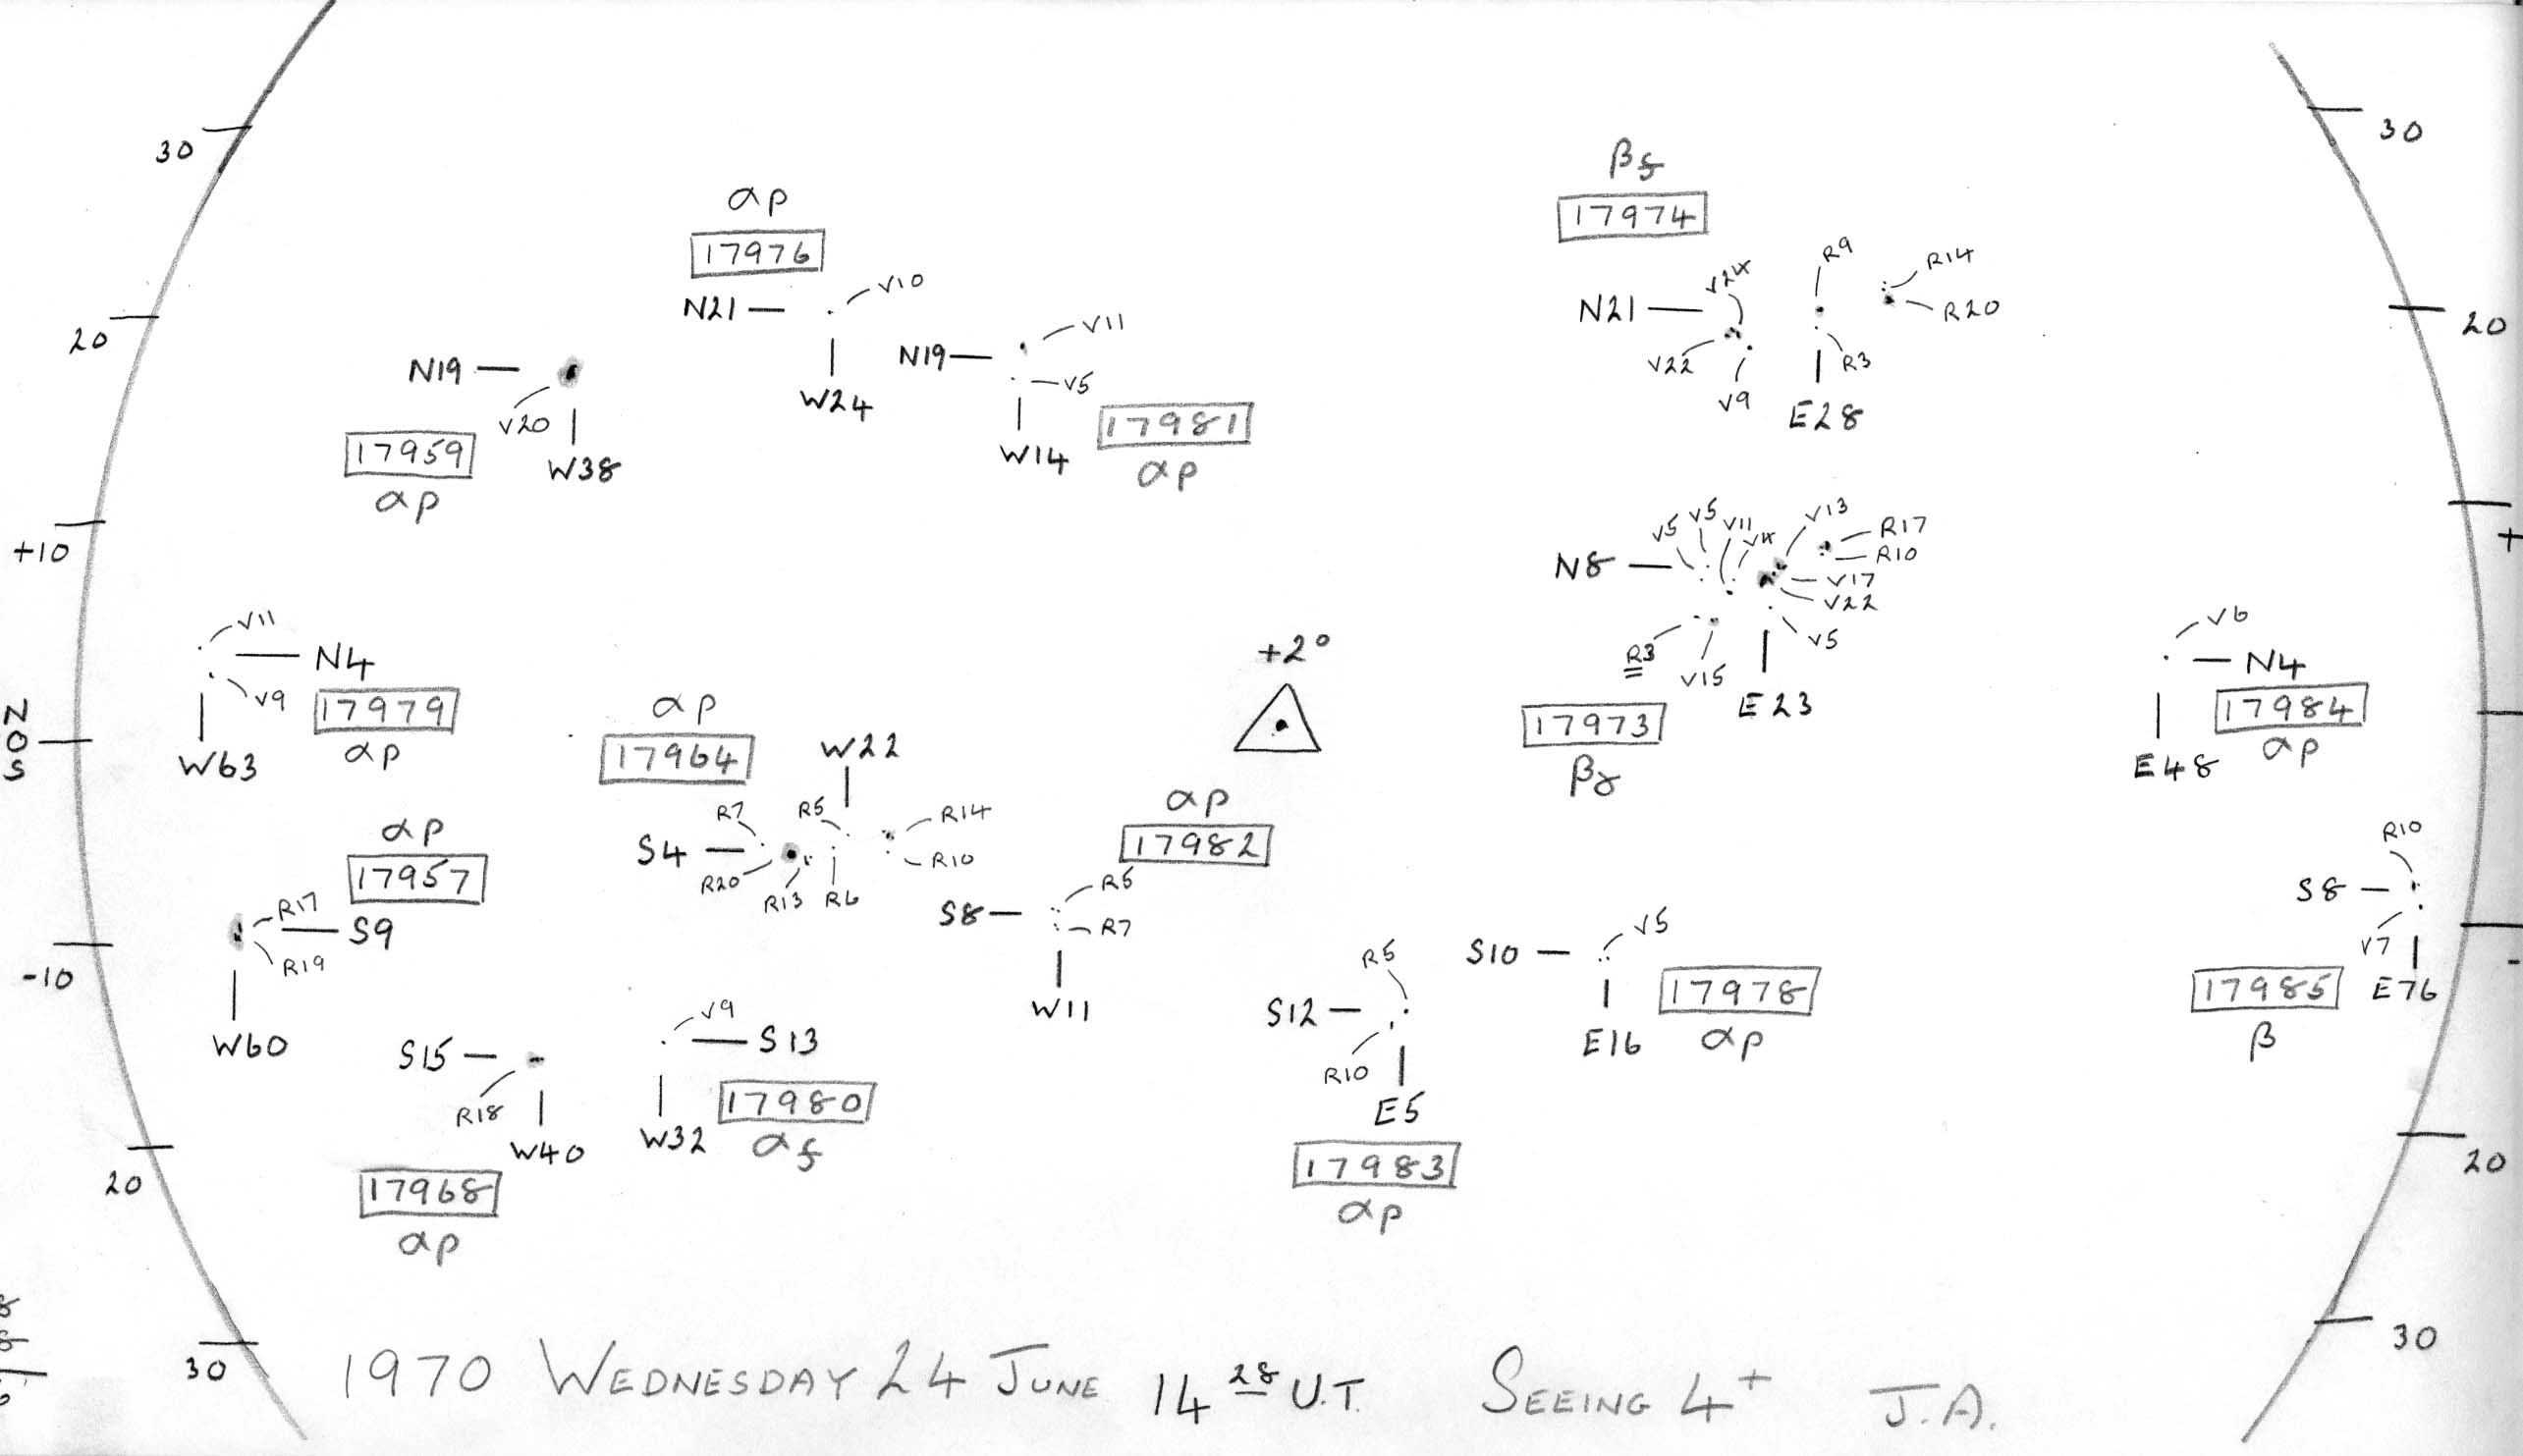 30
30
βf
17974
αp
17976
N21
V10
R9
R14
V24
N21
R20
V22
R3
V9
E28
20
20
W24
N19
V11
V5
W14
17981
αp
N19
V20
W38
17959
αp
+10
+
V5
V5
V11
V13
R17
R10
N8
V17
V22
V5
R3
V15
E23
17973
βγ
V11
N4
V9
17979
αp
W63
N
O
S
+2°
V6
N4
17984
αp
E48
αp
17964
W22
R7
R5
R14
S4
R10
R20
R13
R6
αp
17982
R5
S8
R7
W11
αp
17957
R17
S9
R19
W60
-10
-
R10
S8
V7
E76
17985
β
V5
S10
E16
17978
αp
R5
S12
R10
E5
17983
αp
V9
S13
W32
17980
αf
S15
R18
W40
17968
αp
20
20
30
30
1970 WEDNESDAY 24 JUNE 14 28 U.T. SEEING 4+ J.A.